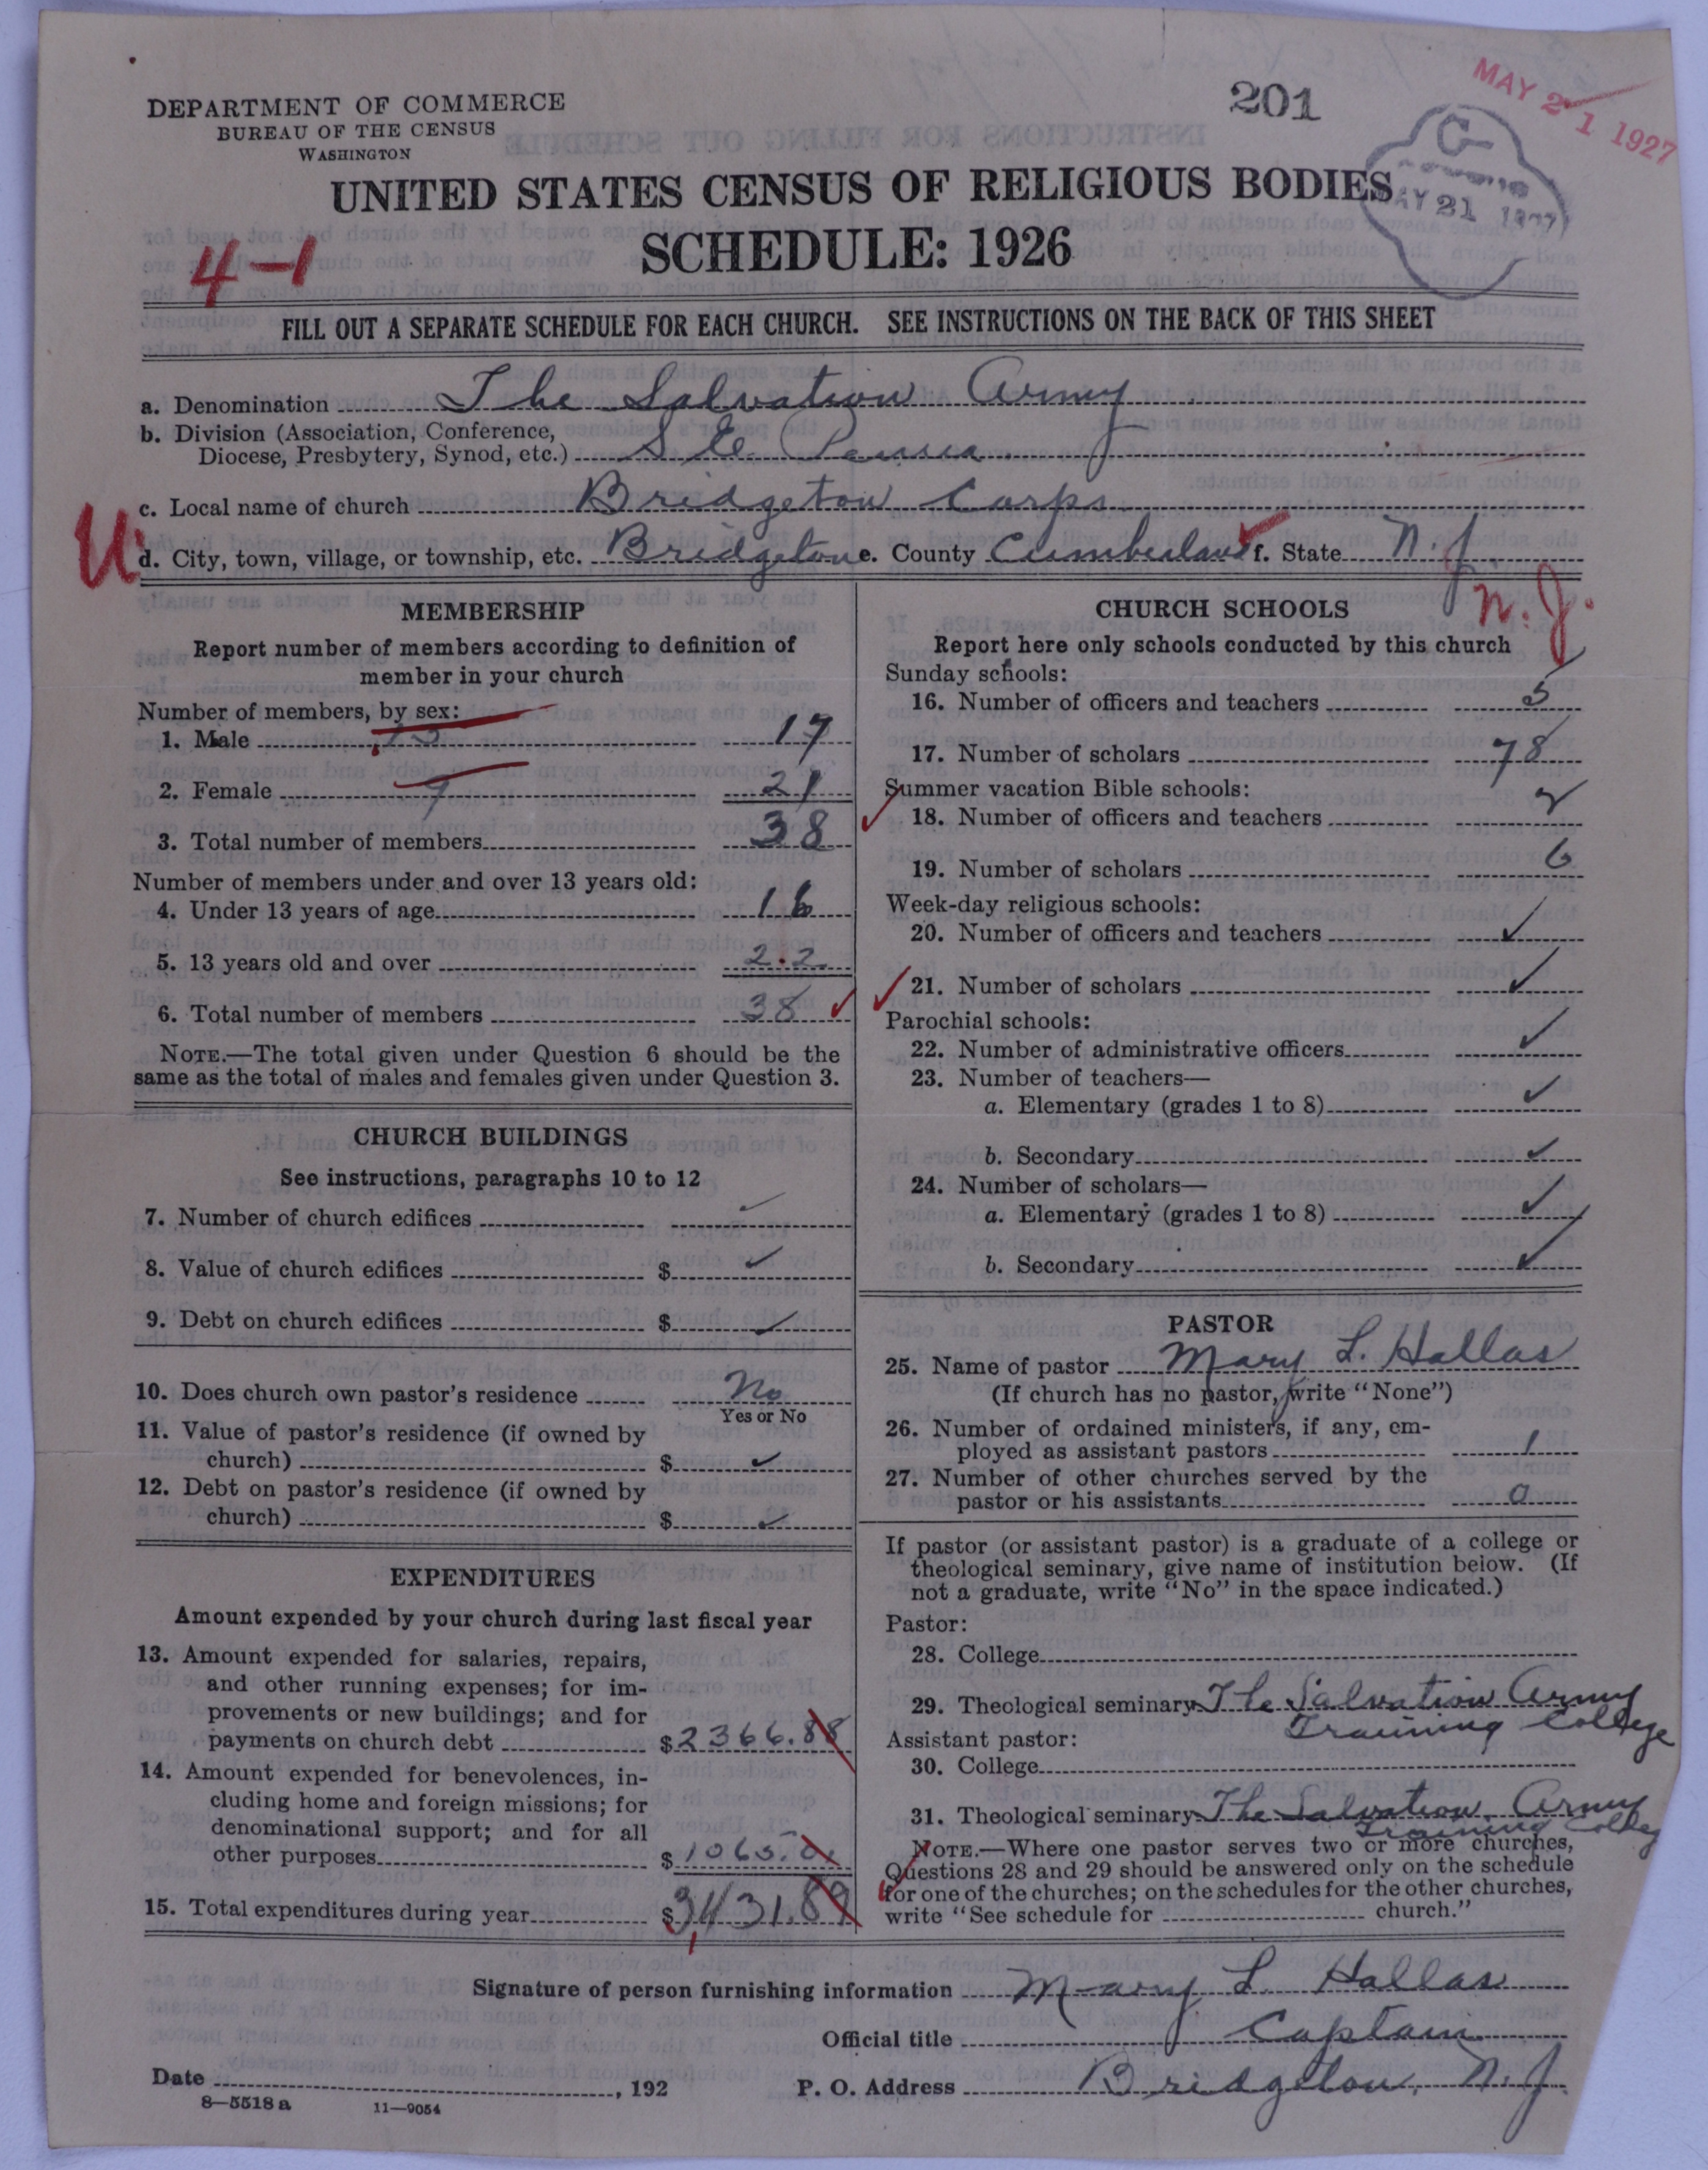 201
MAY 21 1927
DEPARTMENT OF COMMERCE
BUREAU OF THE CENSUS
WASHINGTON
UNITED STATES CENSUS OF RELIGIOUS BODIES
MAY 21 1927
SCHEDULE: 1926
4-1
FILL OUT A SEPARATE SCHEDULE FOR EACH CHURCH. SEE INSTRUCTIONS ON THE BACK OF THIS SHEET
a. Denomination The Salvation Army
b. Division (Association, Conference,
Diocese, Presbytery, Synod, etc.) S E Penna
c. Local name of church Bridgeton Corps
U d. City, town, village, or township, etc. Bridgeton e. County Cumberland f. State N.J.
N.J.
MEMBERSHIP
Report number of members according to definition of
member in your church
Number of members, by sex:
1. Male 17
2. Female 9 21
3. Total number of members 38
Number of members under and over 13 years old:
4. Under 13 years of age 16
5. 13 years old and over 22
6. Total number of members 38 ✓
NOTE.—The total given under Question 6 should be the
same as the total of males and females given under Question 3.
CHURCH BUILDINGS
See instructions, paragraphs 10 to 12
7. Number of church edifices ✓
8. Value of church edifices $ ✓
9. Debt on church edifices $ ✓
10. Does church own pastor's residence No
Yes or No
11. Value of pastor's residence (if owned by
church) $ ✓
12. Debt on pastor's residence (if owned by
church) $ ✓
EXPENDITURES
Amount expended by your church during last fiscal year
13. Amount expended for salaries, repairs,
and other running expenses; for im-
provements or new buildings; and for
payments on church debt $2366.88
14. Amount expended for benevolences, in-
cluding home and foreign missions; for
denominational support; and for all
other purposes $1065.01
15. Total expenditures during year $3431.89
CHURCH SCHOOLS
Report here only schools conducted by this church
Sunday schools:
16. Number of officers and teachers 5
17. Number of scholars 78
Summer vacation Bible schools:
18. Number of officers and teachers
19. Number of scholars 6
Week-day religious schools:
20. Number of officers and teachers ✓
21. Number of scholars ✓
Parochial schools:
22. Number of administrative officers ✓
23. Number of teachers—
a. Elementary (grades 1 to 8) ✓
b. Secondary ✓
24. Number of scholars—
a. Elementary (grades 1 to 8) ✓
b. Secondary ✓
PASTOR
25. Name of pastor Mary L. Hallas
(If church has no pastor, write "None")
26. Number of ordained ministers, if any, em-
ployed as assistant pastors 1
27. Number of other churches served by the
pastor or his assistants 0
If pastor (or assistant pastor) is a graduate of a college or
theological seminary, give name of institution below. (If
not a graduate, write "No" in the space indicated.)
Pastor:
28. College
29. Theological seminary The Salvation Army
Training College
Assistant pastor:
30. College
31. Theological seminary The Salvation Army
Training College
NOTE.—Where one pastor serves two or more churches,
Questions 28 and 29 should be answered only on the schedule
for one of the churches; on the schedules for the other churches,
write "See schedule for church."
Signature of person furnishing information Mary L. Hallas
Official title Captain
Date , 192
P. O. Address Bridgeton, N.J.
8—5518 a 11—9054